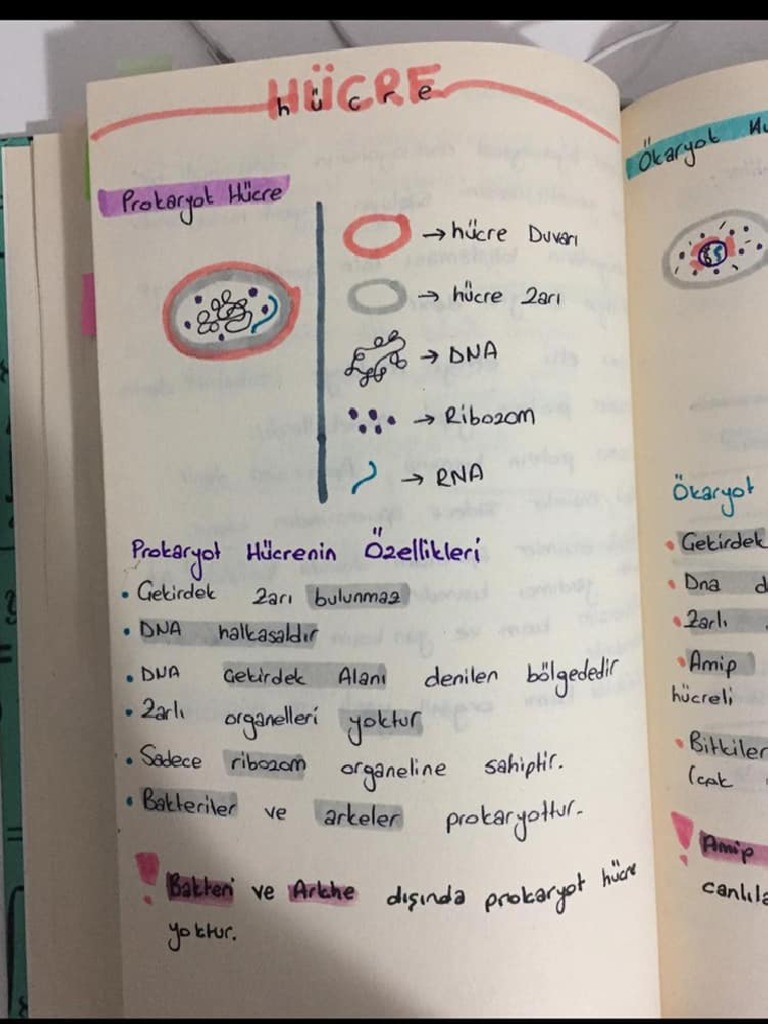 HÜCRE
hücre
Prokaryot Hücre
→ hücre Duvarı
→ hücre Zarı
→ DNA
→ Ribozom
→ RNA
Prokaryot Hücrenin Özellikleri
• Çekirdek zarı bulunmaz
• DNA halkasaldır
• DNA Çekirdek Alanı denilen bölgededir
• Zarlı organelleri yoktur
• Sadece ribozom organeline sahiptir.
• Bakteriler ve arkeler prokaryottur.
! Bakteri ve Arkhe dışında prokaryot hücre
yoktur.
Ökaryot
Ökaryot
• Çekirdek
• Dna
• Zarlı
• Amip
hücreli
• Bitkiler
! Amip